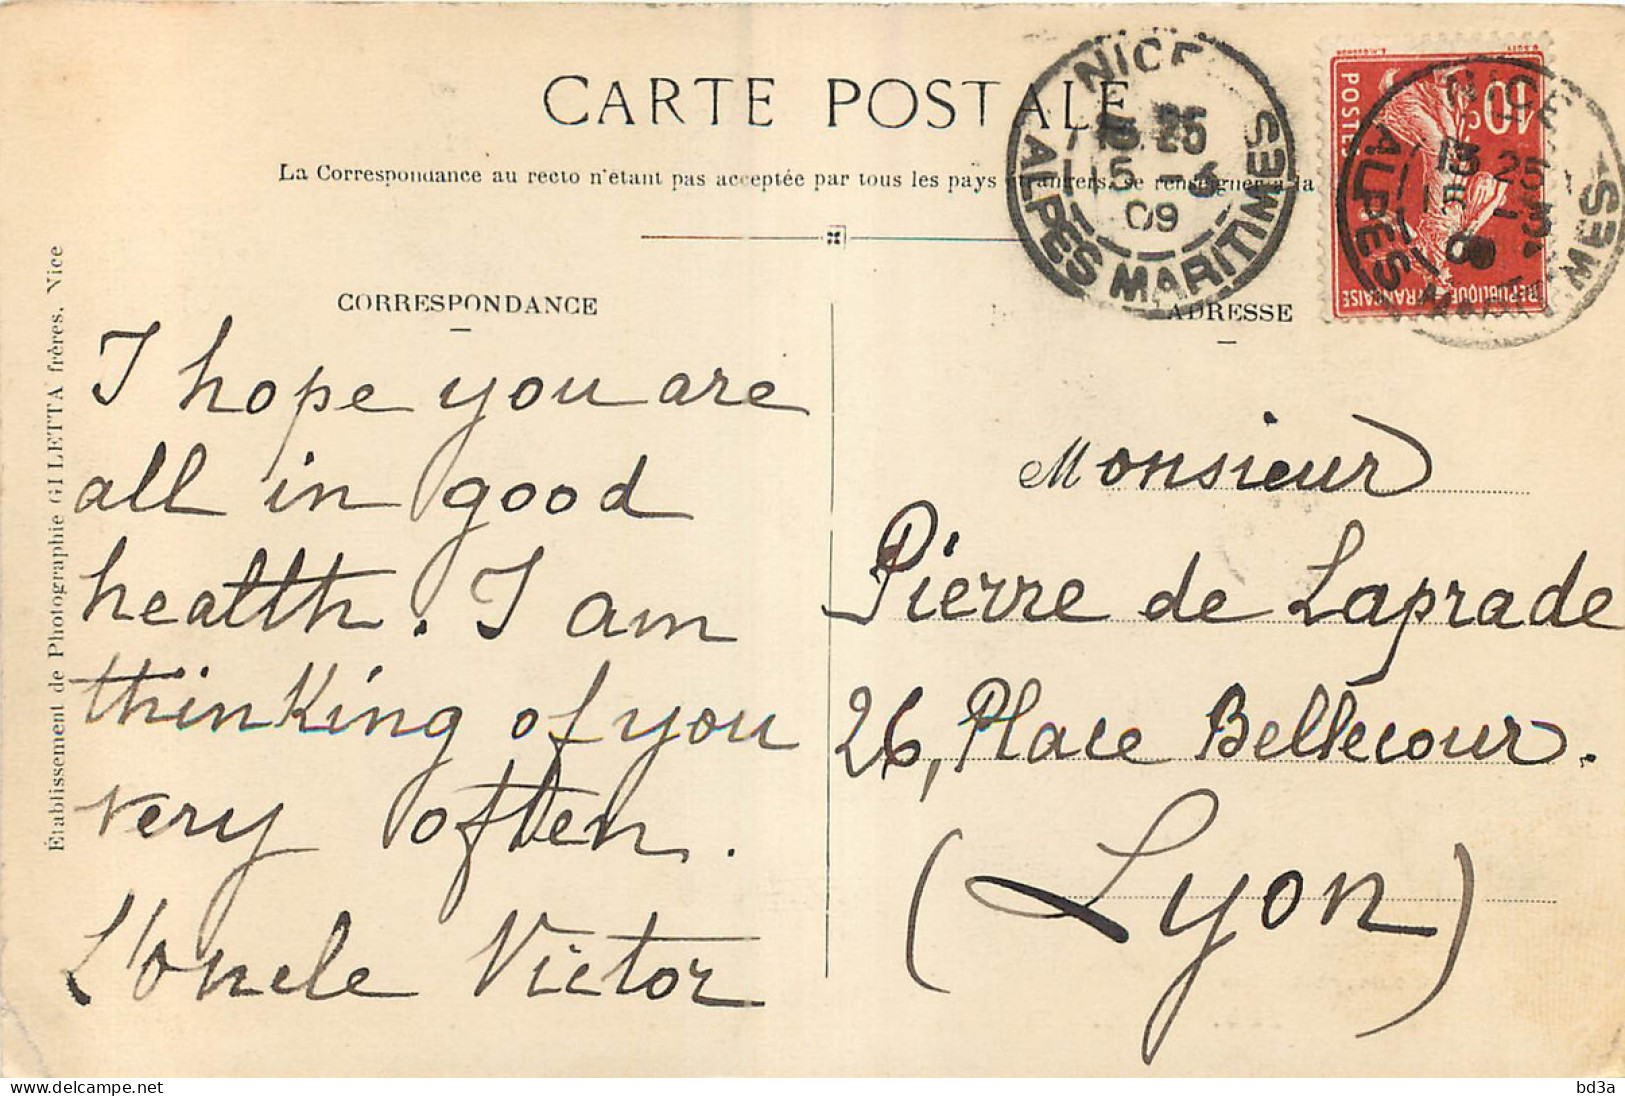 CARTE POSTALE
La Correspondance au recto n'étant pas acceptée par tous les pays étrangers, se renseigner à la
CORRESPONDANCE
ADRESSE
I hope you are
all in good
health. I am
thinking of you
very often.
L'oncle Victor
Monsieur
Pierre de Laprade
26, Place Bellecour.
(Lyon)
Établissement de Photographie GILETTA frères, Nice
NICE
15 - 3
09
ALPES MARITIMES
10c
POSTES
REPUBLIQUE FRANÇAISE
NICE
ALPES MARITIMES
delcampe.net
bd3a